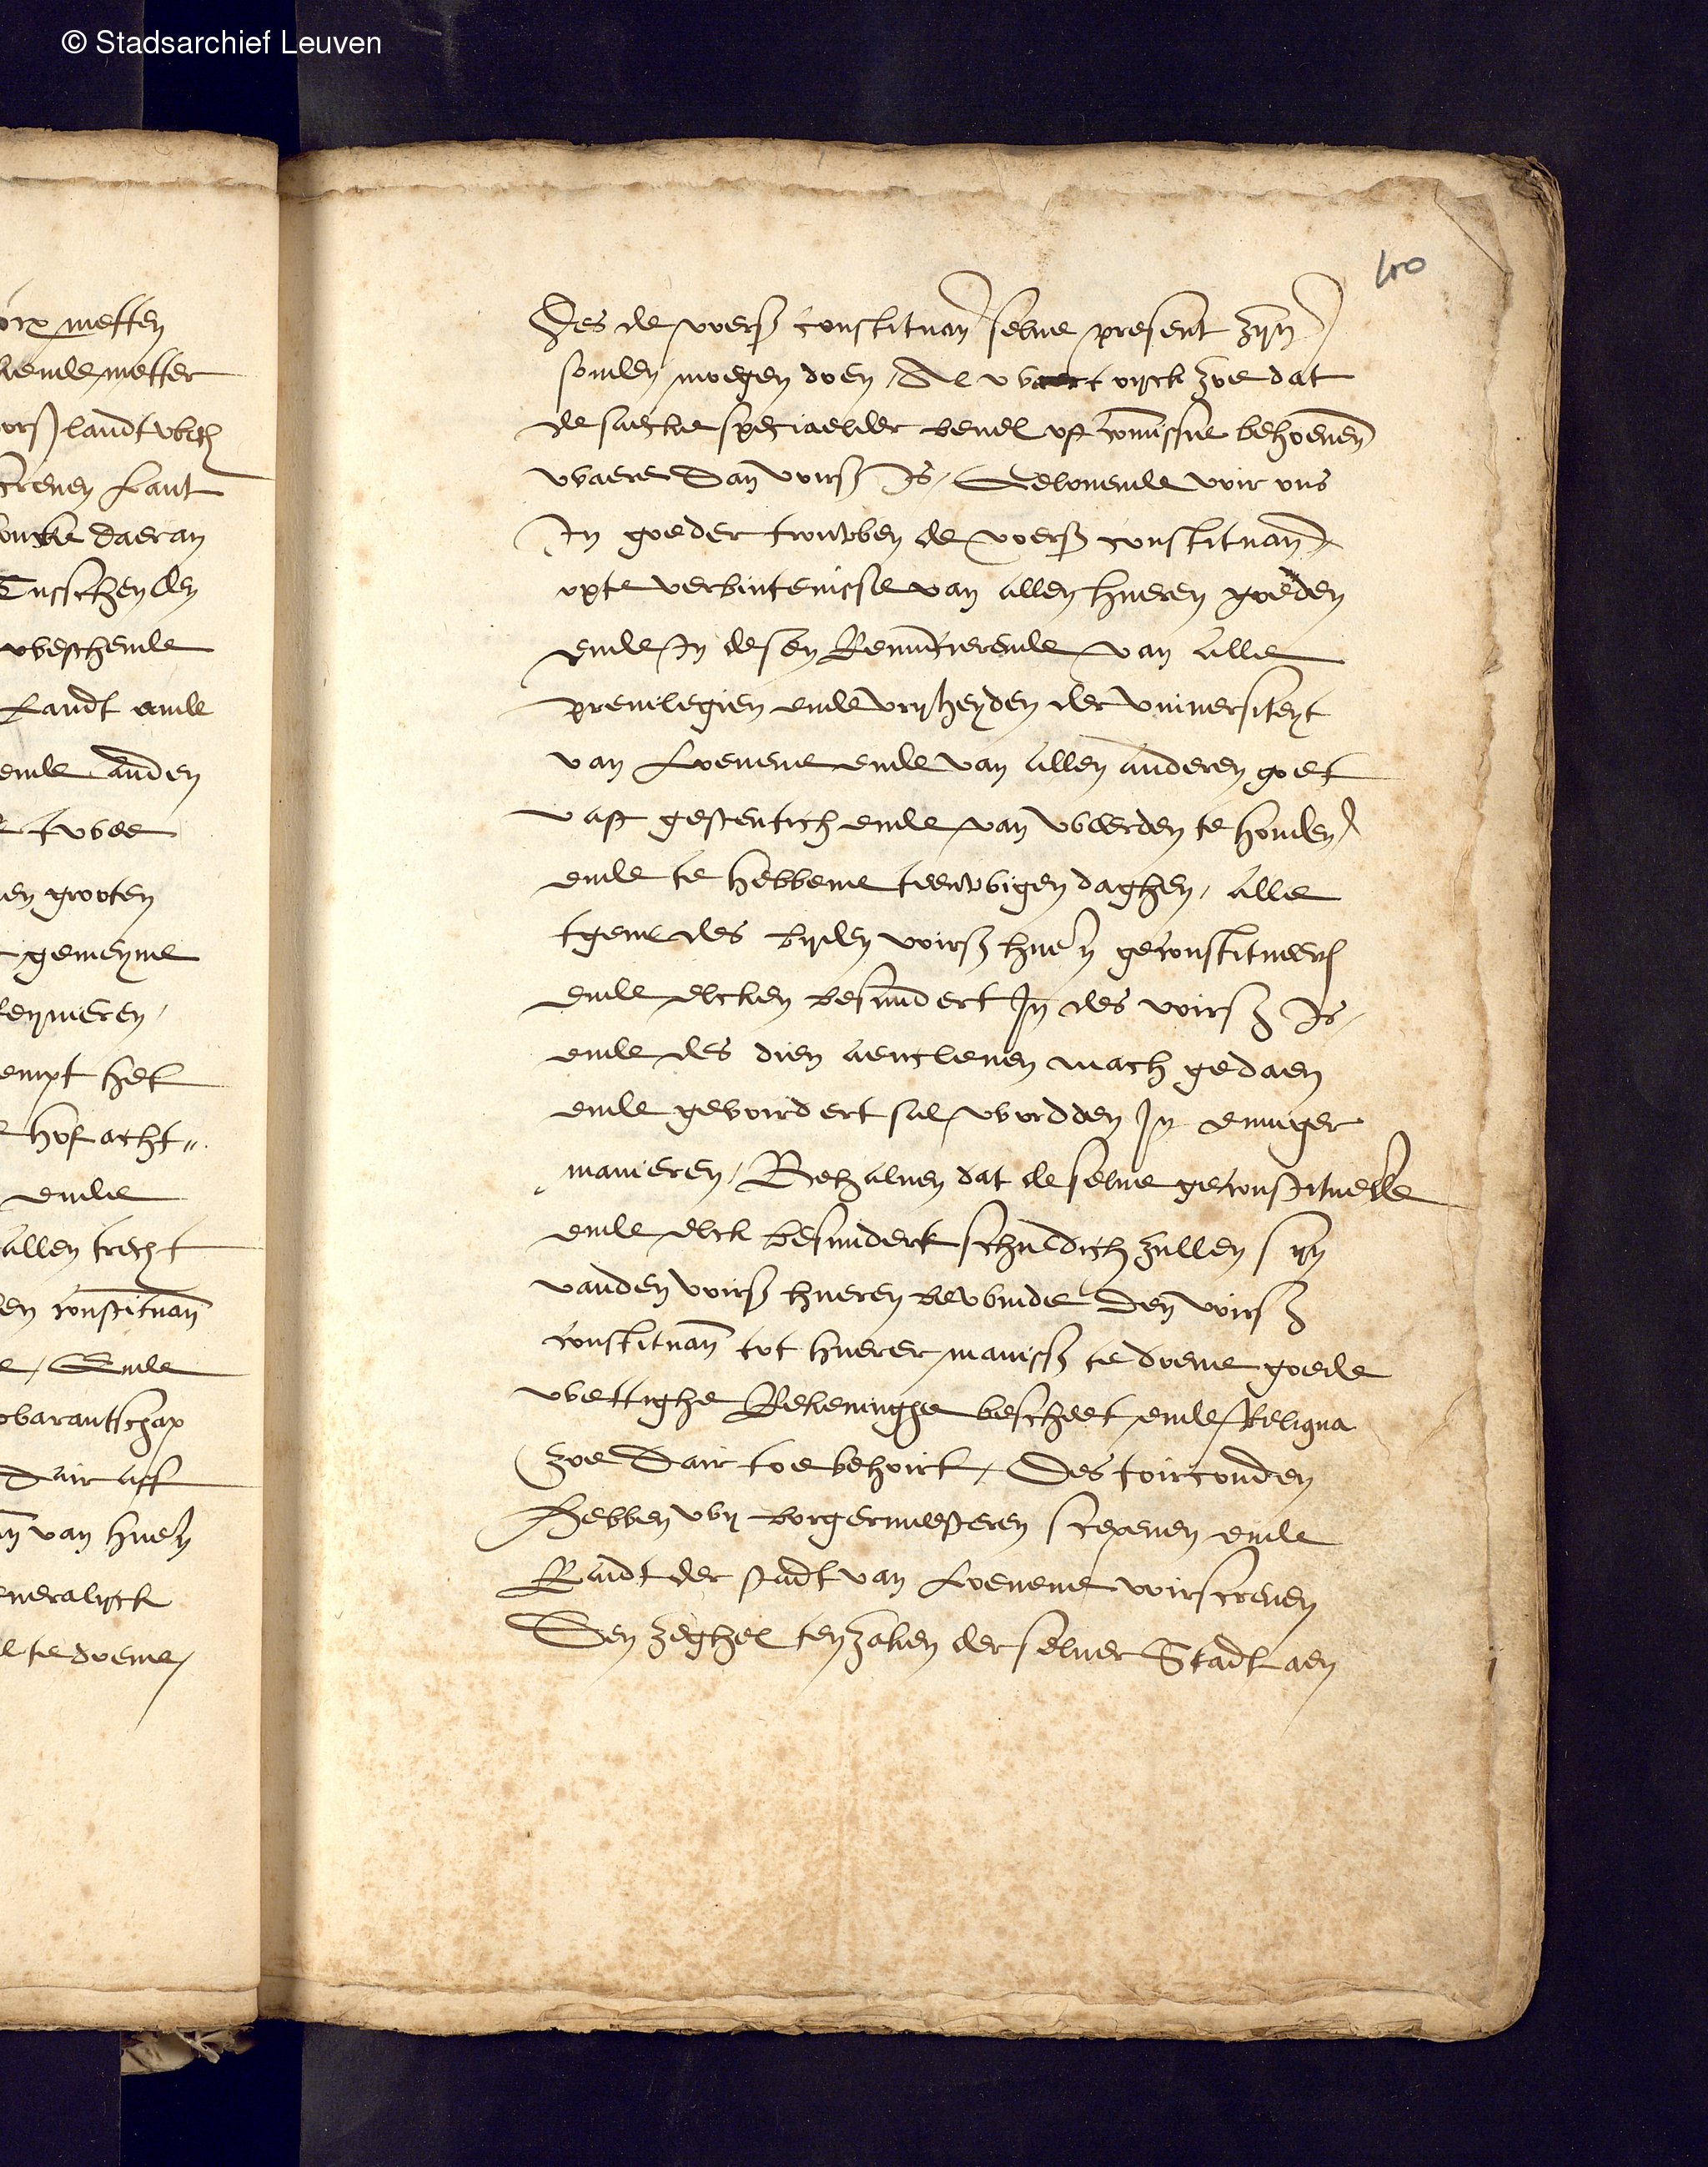 © Stadsarchief Leuven
100
Des de voers constituan selve present zijn
souden moegen doen, Al waert oyck zoe dat
de saecke speciaelder bevel oft comissie behoeven
waere dan voirs Is, Gelovende voir ons
In goeder trouwen de voers constituan
opte verbintenisse van allen hueren goeden
ende In desen Renuncierende van alle
previlegien ende vryheyden der universiteyt
van Loevene ende van allen anderen goet
vast gestentich ende van weerden te houden
ende te hebbene teewigen daghen, alle
tgene des byden voirs huen geconstitueer
ende elcken besundert In des voirs Is,
ende des dien aencleven mach gedaen
ende gevoirdert sal wordden In eeniger
manieren, Behalven dat de selve geconstitueerde
ende elck besundert schuldich zullen syn
vanden voirs hueren bewinde den voirs
constituan tot huerer maniss te doene goede
wettighe Rekeninghe bescheet ende Reliqua
zoe dair toe behoirt, Des toirconden
Hebben wy borgermeesteren scepenen ende
Raidt der stadt van Loevene voirscreven
Den zeghel ten zaken der selver Stadt aen
metten
ende metter
landt
creven Lant
daer an
Tusschen den
Landt ende
ende anden
twee
en grooten
gemeyne
hof acht
ende
allen trecht
en constituan
Ende
warantschap
Dair aff
van huen
neralyck
te doene,